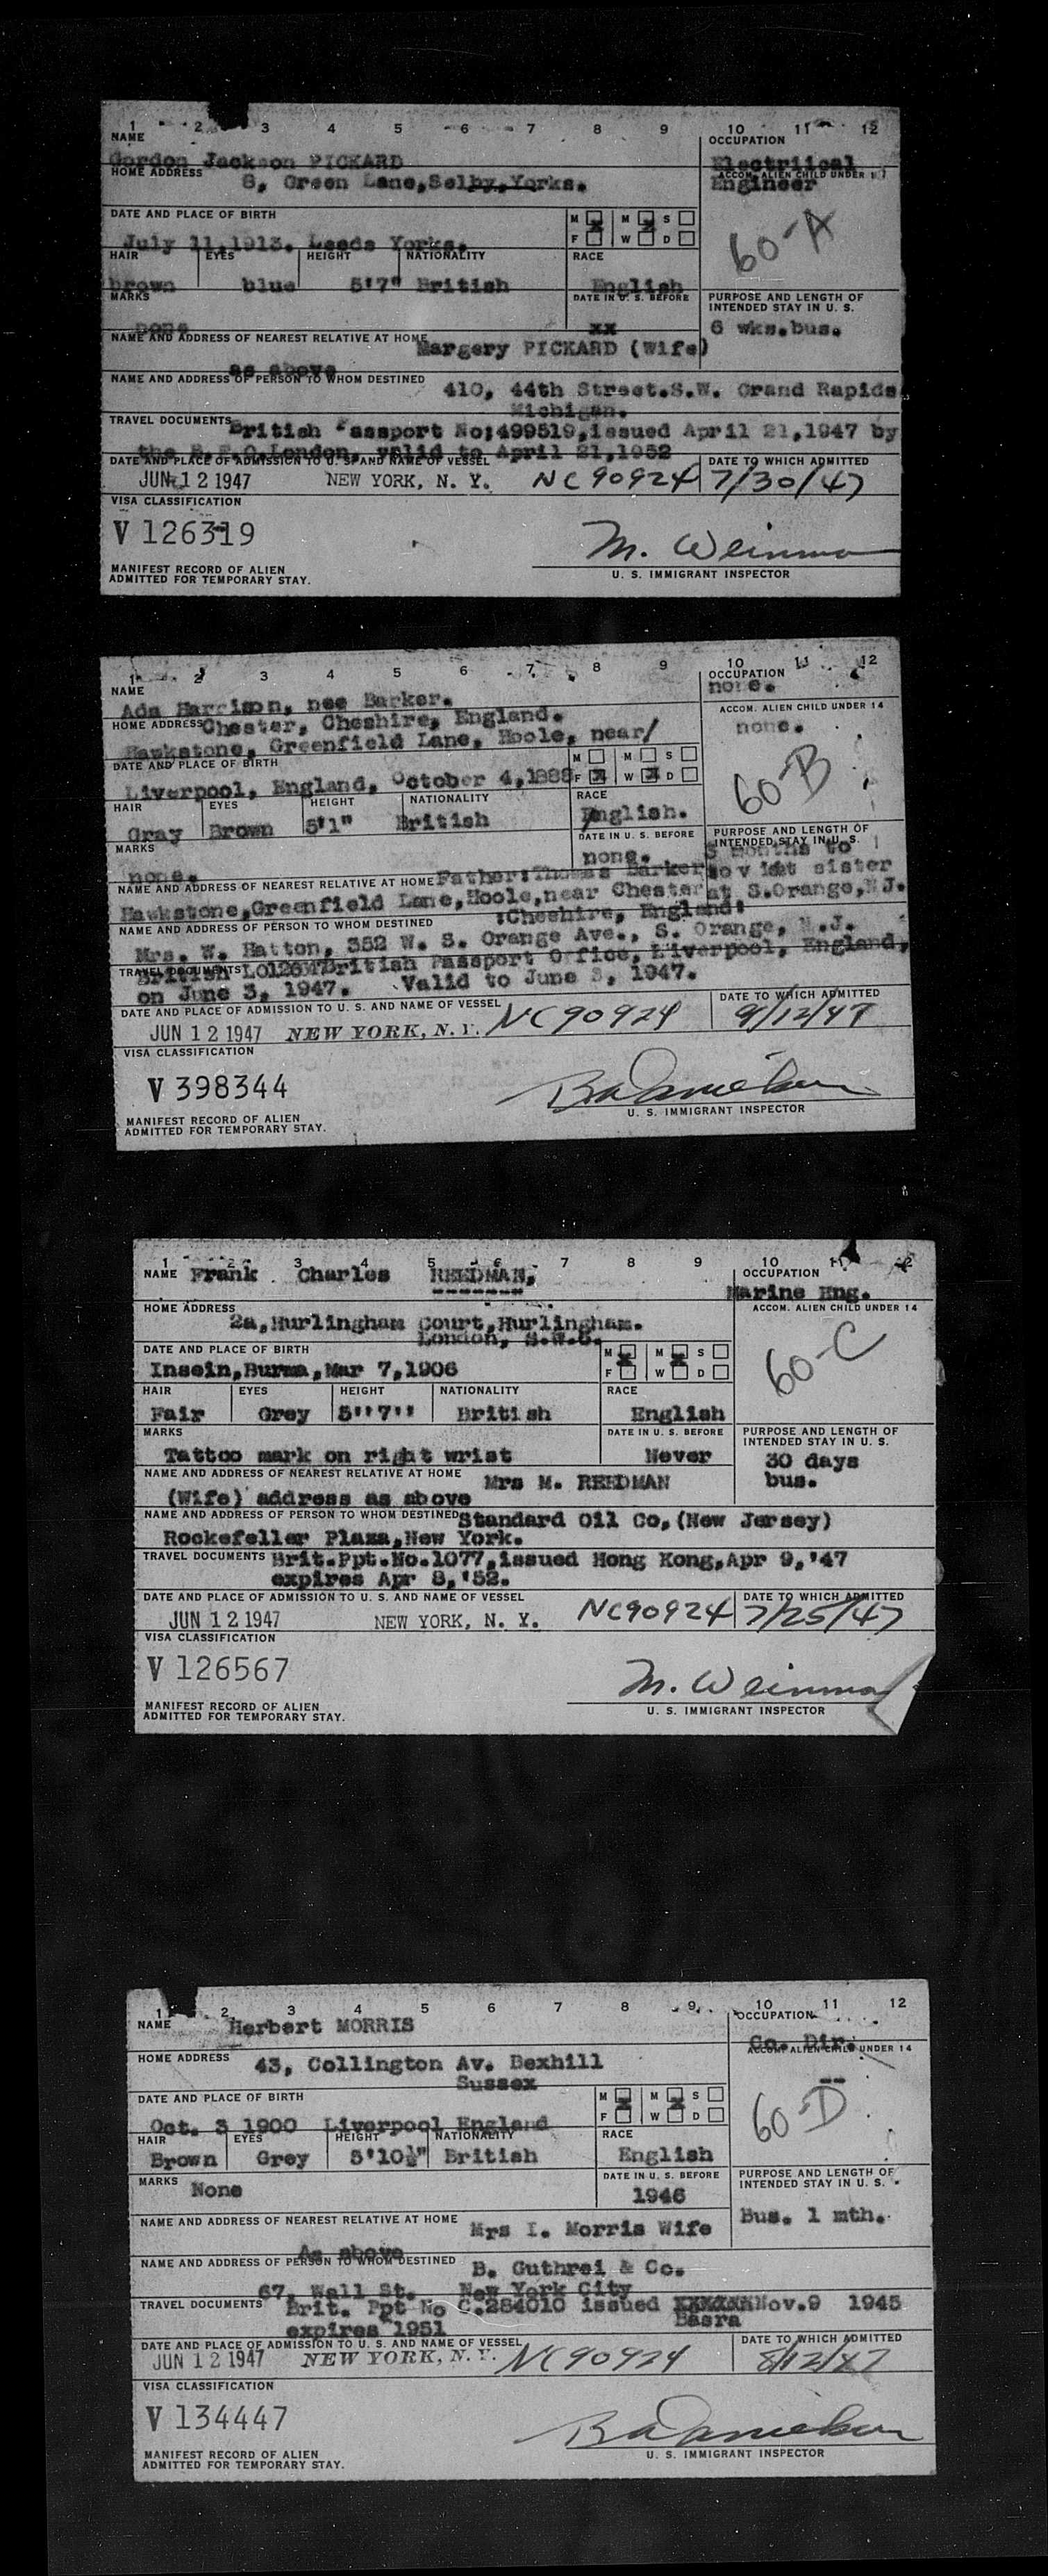 1 2 3 4 5 6 7 8 9 10 11 12
NAME
OCCUPATION
Gordon Jackson PICKARD
Electriical
HOME ADDRESS
ACCOM. ALIEN CHILD UNDER
8, Green Lane,Selby,Yorks.
Engineer
DATE AND PLACE OF BIRTH
M M S
F W D
60-A
July 11,1913. Leeds Yorks.
HAIR EYES HEIGHT NATIONALITY RACE
brown blue 5'7" British English
MARKS
DATE IN U. S. BEFORE
PURPOSE AND LENGTH OF
INTENDED STAY IN U. S.
none
xx
6 wks.bus.
NAME AND ADDRESS OF NEAREST RELATIVE AT HOME
Margery PICKARD (Wife)
as above
NAME AND ADDRESS OF PERSON TO WHOM DESTINED
410, 44th Street.S.W. Grand Rapids
Michigan.
TRAVEL DOCUMENTS
British Passport No;499519,issued April 21,1947 by
the London, valid to April 21,1952
DATE AND PLACE OF ADMISSION TO U. S. AND NAME OF VESSEL
DATE TO WHICH ADMITTED
JUN 12 1947 NEW YORK, N. Y. NC90924 7/30/47
VISA CLASSIFICATION
V 126319
M. Weinman
MANIFEST RECORD OF ALIEN
ADMITTED FOR TEMPORARY STAY.
U. S. IMMIGRANT INSPECTOR
1 2 3 4 5 6 7 8 9 10 11 12
NAME
OCCUPATION
none.
Ada Harrison, nee Barker.
ACCOM. ALIEN CHILD UNDER 14
none.
HOME ADDRESS Chester, Cheshire, England.
Hawkstone, Greenfield Lane, Hoole, near/
DATE AND PLACE OF BIRTH
M M S
F W D
60-B
Liverpool, England, October 4,1888
HAIR EYES HEIGHT NATIONALITY RACE
Gray Brown 5'1" British English.
MARKS
DATE IN U. S. BEFORE
PURPOSE AND LENGTH OF
INTENDED STAY IN U. S.
none.
none.
3 months to
NAME AND ADDRESS OF NEAREST RELATIVE AT HOME Father:Thomas Barker
sister
Hawkstone,Greenfield Lane,Hoole,near Chester
at S.Orange,N.J.
:Cheshire, England:
NAME AND ADDRESS OF PERSON TO WHOM DESTINED
Mrs. W. Hatton, 352 W. S. Orange Ave., S. Orange, N.J.
TRAVEL DOCUMENTS
British Passport Office, Liverpool, England,
on June 3, 1947. Valid to June 3, 1947.
DATE AND PLACE OF ADMISSION TO U. S. AND NAME OF VESSEL
DATE TO WHICH ADMITTED
JUN 12 1947 NEW YORK, N.Y. NC90924 9/12/47
VISA CLASSIFICATION
V 398344
MANIFEST RECORD OF ALIEN
ADMITTED FOR TEMPORARY STAY.
U. S. IMMIGRANT INSPECTOR
1 2 3 4 5 6 7 8 9 10 11 12
NAME Frank Charles REEDMAN,
OCCUPATION
Marine Eng.
HOME ADDRESS
ACCOM. ALIEN CHILD UNDER 14
2a,Hurlingham Court,Hurlingham.
London, S.W.6.
DATE AND PLACE OF BIRTH
M M S
F W D
60-C
Insein,Burma,Mar 7,1906
HAIR EYES HEIGHT NATIONALITY RACE
Fair Grey 5''7'' British English
MARKS
DATE IN U. S. BEFORE
PURPOSE AND LENGTH OF
INTENDED STAY IN U. S.
Tattoo mark on right wrist
Never
30 days
bus.
NAME AND ADDRESS OF NEAREST RELATIVE AT HOME
Mrs M. REEDMAN
(Wife) address as above
NAME AND ADDRESS OF PERSON TO WHOM DESTINED Standard Oil Co,(New Jersey)
Rockefeller Plaza,New York.
TRAVEL DOCUMENTS Brit.Ppt.No.1077,issued Hong Kong,Apr 9,'47
expires Apr 8,'52.
DATE AND PLACE OF ADMISSION TO U. S. AND NAME OF VESSEL
DATE TO WHICH ADMITTED
JUN 12 1947 NEW YORK, N. Y. NC90924 7/25/47
VISA CLASSIFICATION
V 126567
M. Weinman
MANIFEST RECORD OF ALIEN
ADMITTED FOR TEMPORARY STAY.
U. S. IMMIGRANT INSPECTOR
1 2 3 4 5 6 7 8 9 10 11 12
NAME Herbert MORRIS
OCCUPATION
Co. Dir.
HOME ADDRESS
ACCOM. ALIEN CHILD UNDER 14
43, Collington Av. Bexhill
Sussex
--
DATE AND PLACE OF BIRTH
M M S
F W D
60-D
Oct. 3 1900 Liverpool England
HAIR EYES HEIGHT NATIONALITY RACE
Brown Grey 5'10½" British English
MARKS None
DATE IN U. S. BEFORE
PURPOSE AND LENGTH OF
INTENDED STAY IN U. S.
1946
Bus. 1 mth.
NAME AND ADDRESS OF NEAREST RELATIVE AT HOME
Mrs I. Morris Wife
As above
NAME AND ADDRESS OF PERSON TO WHOM DESTINED
B. Guthrei & Co.
67, Wall St. New York City
TRAVEL DOCUMENTS Brit. Ppt No C.284010 issued Nov.9 1945
expires 1951
Basra
DATE AND PLACE OF ADMISSION TO U. S. AND NAME OF VESSEL
DATE TO WHICH ADMITTED
JUN 12 1947 NEW YORK, N. Y. NC90924 8/12/47
VISA CLASSIFICATION
V 134447
MANIFEST RECORD OF ALIEN
ADMITTED FOR TEMPORARY STAY.
U. S. IMMIGRANT INSPECTOR